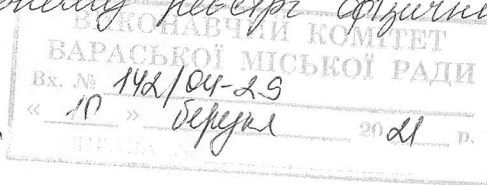 ВИКОНАВЧИЙ КОМІТЕТ
БАРАСЬКОЇ МІСЬКОЇ РАДИ
Вх. № 142/04-29
« 10 » березня 2021 р.